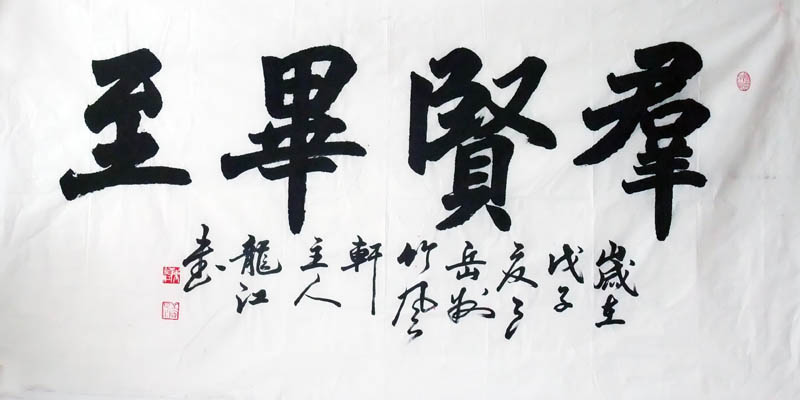 羣賢畢至
歲在
戊子
夏
岳州
竹風
軒
主人
龍江
書